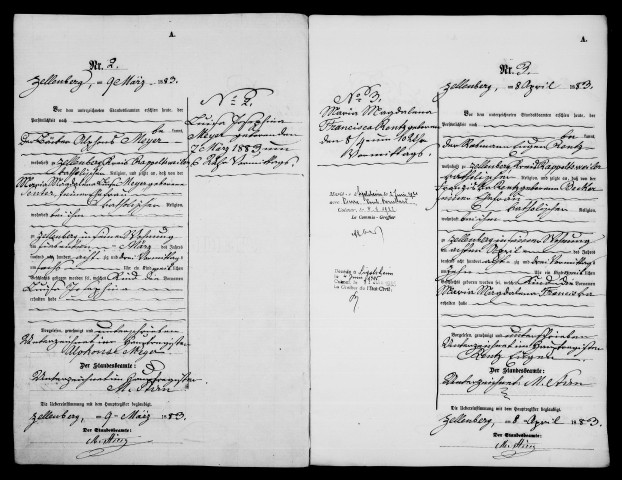 A.
Nr. 2.
Zellenberg, am 9 März 1883.
Vor dem unterzeichneten Standesbeamten erschien heute, der
Persönlichkeit nach
be kannt,
Der Bäcker Alphons Meyer
wohnhaft zu Zellenberg Kreis Rappoltsweiler
katholischer Religion, und zeigte an, daß von der
Maria Magdalena Meyer geborene
seiner Ehefrau
katholischer Religion,
wohnhaft bei ihm
zu Zellenberg in seiner Wohnung
am siebenten März des Jahres
tausend acht hundert achtzig und drei Vormittags
um sechs Uhr ein Kind weiblichen
Geschlechts geboren worden sei, welches den Vornamen
Luisa Josephina
erhalten habe
Vorgelesen, genehmigt und unterschrieben
Unterzeichnet im Hauptregister
Alphonse Meyer
Der Standesbeamte:
Unterzeichnet im Hauptregister
Die Uebereinstimmung mit dem Hauptregister beglaubigt.
Zellenberg, am 9 März 1883.
Der Standesbeamte:
No 2.
Luisa Josephina
Meyer geboren den
7 März 1883 um
6 Uhr Vormittags.
No 3.
Maria Magdalena
Francisca Rentz geboren
den 8 um 10 Uhr
Vormittags.
Le Commis-Greffier
Le Greffier de l'Etat Civil.
A.
Nr. 3.
Zellenberg, am 8 April 1883.
Vor dem unterzeichneten Standesbeamten erschien heute, der
Persönlichkeit nach
be kannt,
Der Rebmann Eugen Rentz
wohnhaft zu Zellenberg Kreis Rappoltsweiler
katholischer Religion, und zeigte an, daß von der
Rentz geborenen Becker
seiner Ehefrau
katholischer Religion,
wohnhaft bei ihm
zu Zellenberg in seiner Wohnung
am achten April des Jahres
tausend acht hundert achtzig und drei Vormittags
um zehn Uhr ein Kind weiblichen
Geschlechts geboren worden sei, welches den Vornamen
Maria Magdalena Francisca
erhalten habe
Vorgelesen, genehmigt und unterschrieben
Unterzeichnet im Hauptregister
Rentz Eugen
Der Standesbeamte:
Unterzeichnet
Die Uebereinstimmung mit dem Hauptregister beglaubigt.
Zellenberg, am 8 April 1883.
Der Standesbeamte: